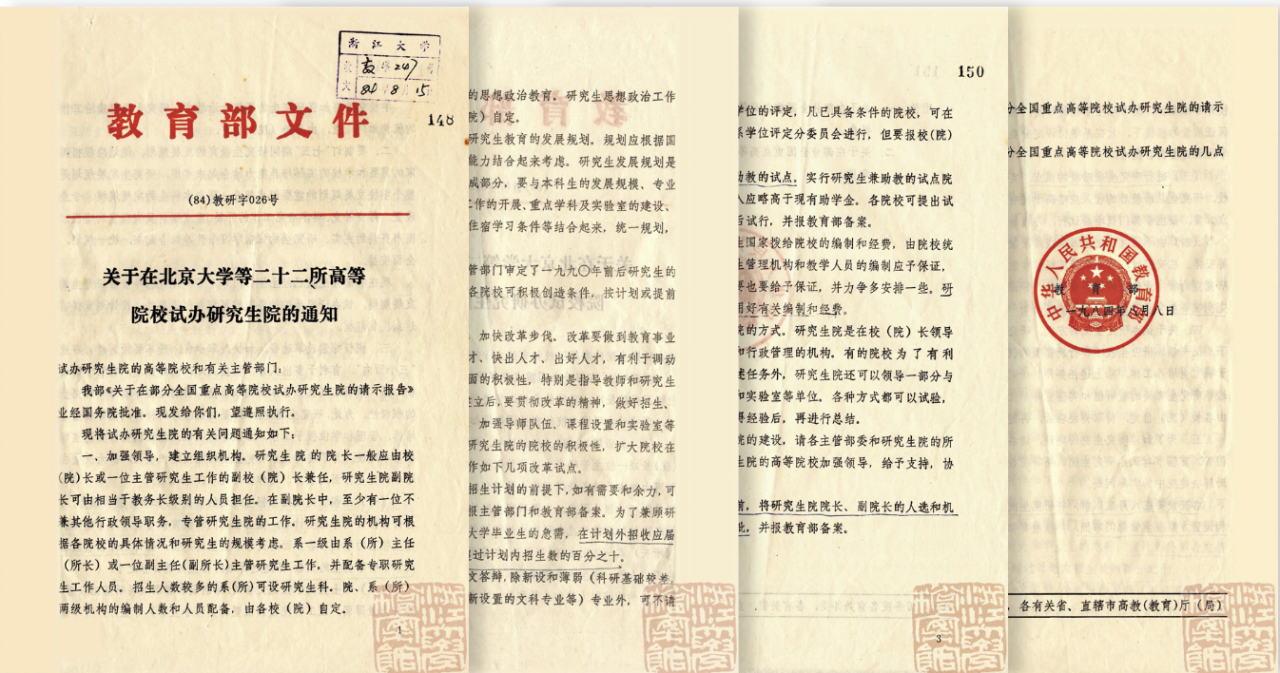 浙江大学
教 学247号
84年8月15
教育部文件
148
(84)教研字026号
关于在北京大学等二十二所高等
院校试办研究生院的通知
试办研究生院的高等院校和有关主管部门:
我部《关于在部分全国重点高等院校试办研究生院的请示报告》
业经国务院批准。现发给你们,望遵照执行。
现将试办研究生院的有关问题通知如下:
一、加强领导,建立组织机构。研究生院的院长一般应由校
(院)长或一位主管研究生工作的副校(院)长兼任,研究生院副院
长可由相当于教务长级别的人员担任。在副院长中,至少有一位不
兼其他行政领导职务,专管研究生院的工作。研究生院的机构可根
据各院校的具体情况和研究生的规模考虑。系一级由系(所)主任
(所长)或一位副主任(副所长)主管研究生工作,并配备专职研究
生工作人员。招生人数较多的系(所)可设研究生科。院、系(所)
两级机构的编制人数和人员配备,由各校(院)自定。
1
的思想政治教育。研究生思想政治工作
院)自定。
研究生教育的发展规划。规划应根据国
能力结合起来考虑。研究生发展规划是
成部分,要与本科生的发展规模、专业
工作的开展、重点学科及实验室的建设、
住宿学习条件等结合起来,统一规划,
管部门审定了一九九〇年前后研究生的
各院校可积极创造条件,按计划或提前
加快改革步伐。改革要做到教育事业
才、快出人才、出好人才,有利于调动
面的积极性,特别是指导教师和研究生
建立后,要贯彻改革的精神,做好招生、
加强导师队伍、课程设置和实验室等
研究生院的院校的积极性,扩大院校在
作如下几项改革试点。
招生计划的前提下,如有需要和余力,可
报主管部门和教育部备案。为了兼顾研
大学毕业生的急需,在计划外招收应届
超过计划内招生数的百分之十。
文答辩,除新设和薄弱(科研基础较差,
新设置的文科专业等)专业外,可不请
150
学位的评定,凡已具备条件的院校,可在
系学位评定分委员会进行,但要报校(院)
助教的试点。实行研究生兼助教的试点院
入应略高于现有助学金。各院校可提出试
后试行,并报教育部备案。
生国家拨给院校的编制和经费,由院校统
生管理机构和教学人员的编制应予保证,
要也要给予保证,并力争多安排一些。研
用好有关编制和经费。
院的方式。研究生院是在校(院)长领导
和行政管理的机构。有的院校为了有利
述任务外,研究生院还可以领导一部分与
和实验室等单位。各种方式都可以试验,
得经验后,再进行总结。
院的建设。请各主管部委和研究生院的所
生院的高等院校加强领导,给予支持,协
前,将研究生院院长、副院长的人选和机
些,并报教育部备案。
3
分全国重点高等院校试办研究生院的请示
分全国重点高等院校试办研究生院的几点
中华人民共和国教育部
教育部
一九八四年八月八日
,各有关省、直辖市高教(教育)厅(局)